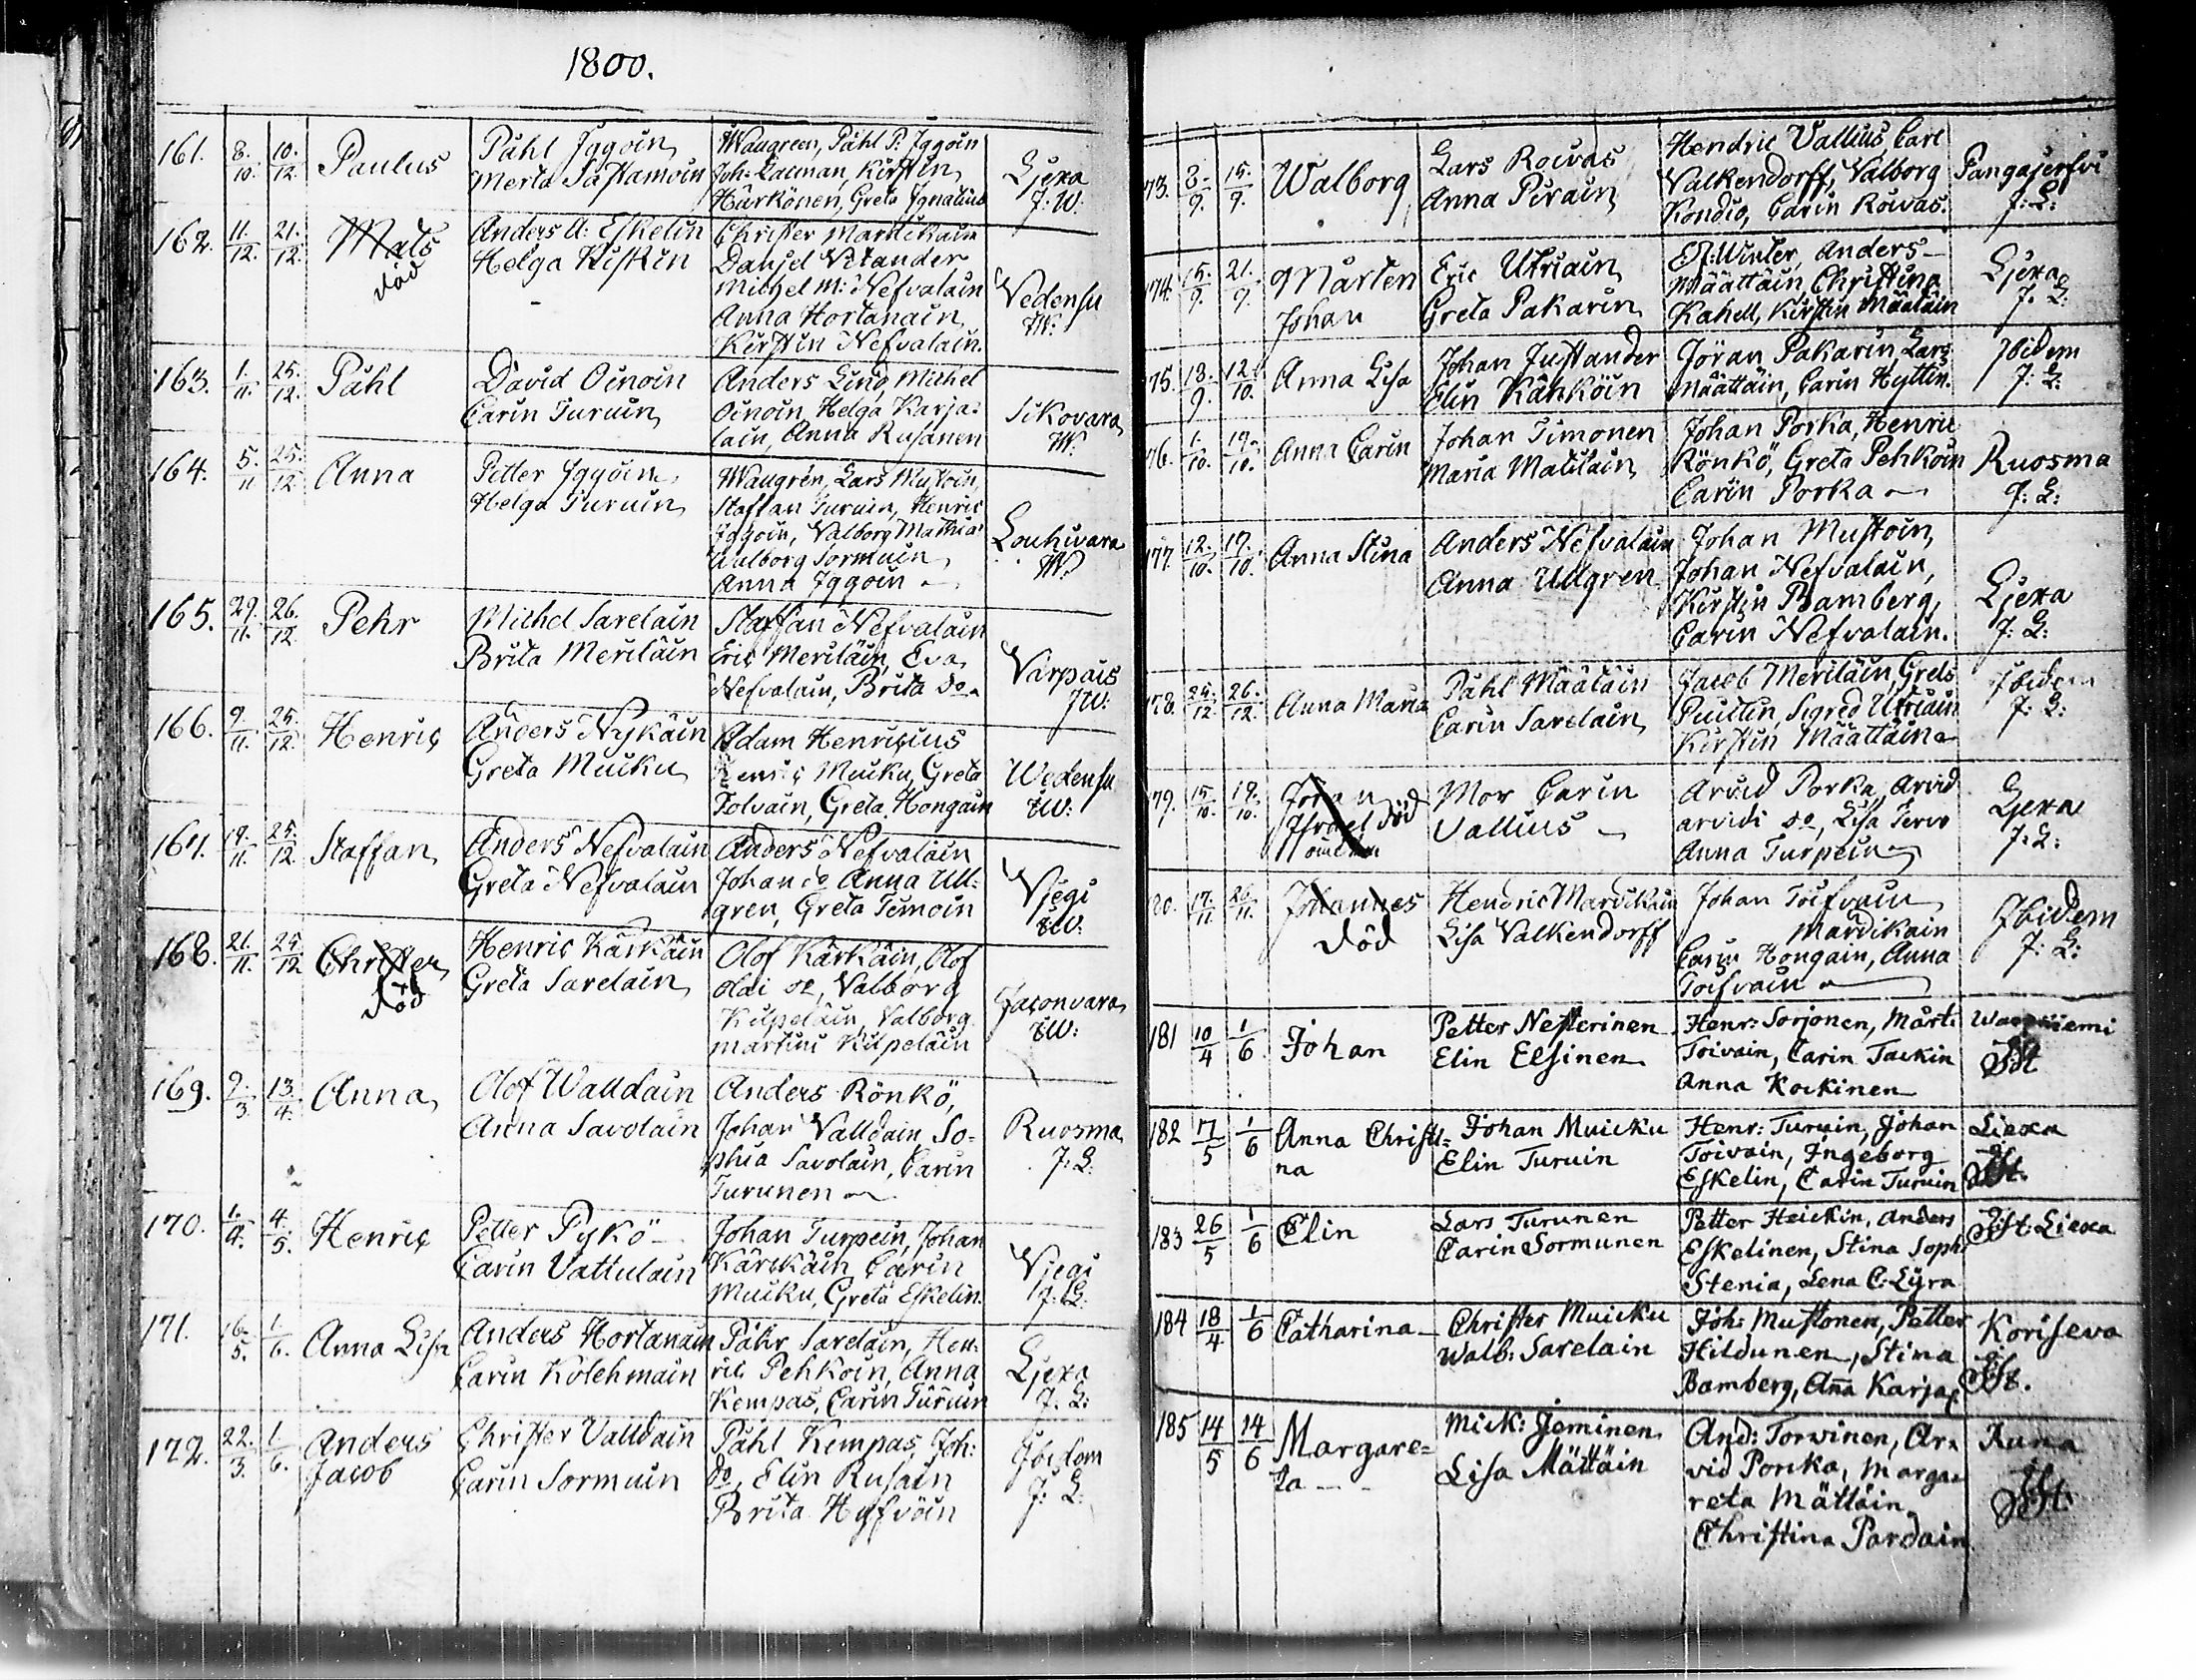 1800.
161. 8./10. 10./12. Paulus Påhl Iggoin Waugreen, Påhl P: Iggoin
Merta Sastamoin Joh: Kirstin Ljexa
Härkönen, Greta Ignatius J: W:
162. 11./12. 21./12. Mats Anders A: Eskelin Christer Martikain
död Helga Kiskin Daniel Vitander
Michel M: Nefvalain Vedensu
Anna Hortanain W:
Kirstin Nefvalain.
163. 1./11. 25./12. Påhl David Oinoin Anders Lind, Michel
Carin Turuin Oinoin, Helga Karja- Sikovara
lain, Anna Rusanen W:
164. 5./11 25./12 Anna Petter Iggoin Waugrén, Lars Mustoin,
Helga Turuin Staffan Turuin, Henric
Iggoin, Valborg Mathiae Louhivara
Walborg Sormuin W:
Anna Iggoin
165. 29./11. 26./12 Pehr Michel Sarelain Staffan Nefvalain
Brita Meriläin Eric Meriläin, Eva Varpais
Nefvalain, Brita do JW:
166. 9./11. 25./12. Henric Anders Nykäin Adam Henricius
Greta Muiku Henric Muiku, Greta Wedensu
Tolvain, Greta Hongain W:
167. 19./11. 25./12 Staffan Anders Nefvalain Anders Nefvalain
Greta Nefvalain Johan do Anna Ull- Vjegi
gren, Greta Timoin W:
168. 21./11. 25./12 Christer Henric Kärkäin Olof Kärkäin, Olof
död Greta Sarelain Olai do, Valborg
Kilpeläin, Valborg Jaconvara
Martini Kilpeläin W:
169. 9./3. 13./4. Anna Olof Walldain Anders Rönkö,
Anna Savolain Johan Valldain So- Ruosma
phia Savolain, Carin J: L:
Turunen
170. 1./4. 4./5. Henric Petter Pykö Johan Turpein, Johan
Carin Vattulain Kärckäin Carin Vjegi
Muiku, Greta Eskelin. J: L:
171. 16./5. 1./6. Anna Lisa Anders Hortanain Påhr Sarelain, Hen-
Carin Kölehmain ric Pehkoin, Anna Ljexa
Kempas, Carin Turuin J: L:
172. 22./3. 1./6. Anders Christer Valldain Påhl Kempas, Joh:
Jacob Carin Sormuin do, Elin Rusain Ibidem
Brita Hyfvöin J: L:
73. 8./9. 15./9. Walborg Lars Roivas Hendric Vallius, Carl
Anna Pirain Valkendorff, Valborg Pangajerfvi
Kondio, Carin Roivas. J: L:
74. 15./9. 21./9. Mårten Eric Utriain Winter, Anders
Johan Greta Pakarin Määttäin, Christina Ljexa
Kahell, Kirstin Määtäin J: L:
75. 18./9. 12./10. Anna Lisa Johan Justander Jöran Pakarin, Lars Ibidem
Elin Kähköin Määttäin, Carin Hyttin. J: L:
76. 1./10. 19./10. Anna Carin Johan Timonen Johan Porka, Henric
Maria Matilain Rönkö, Greta Pehkoin Ruosma
Carin Porka J: L:
177. 12./10. 19./10. Anna Stina Anders Nefvalain Johan Mustoin,
Anna Ullgren Johan Nefvalain,
Kirstin Bamberg, Ljexa
Carin Nefvalain. J: L:
178. 24./12. 26./12. Anna Maria Påhl Määtäin Jacob Meriläin, Greta Ibidem
Carin Sarelain Puittin, Sigred Utriain J: L:
Kirstin Määttäin
79. 15./10. 19./10. Johan Mor Carin Arvid Porka, Arvid
Israel död Vallius Arvidi do, Lisa Tervo Ljexa
Anna Turpein J: L:
80. 17./11. 26./11. Johannes Hendric Mardikain Johan Toifvain
död Lisa Valkendorff Mardikain Ibidem
Carin Hongain, Anna J: L:
Toifvain
181 10/4 1/6 Johan Petter Nesterinen Henr: Sorjonen, Mårt:
Elin Elsinen Toivain, Carin Tackin St
Anna Kockinen
182 17/5 1/6 Anna Christi- Johan Muicku Henr: Turuin, Johan Liexa
na Elin Turuin Toivain, Ingeborg
Eskelin, Carin Turuin St.
183 26/5 1/6 Elin Lars Turunen Petter Heickin, Anders St. Liexa
Carin Sormunen Eskelinen, Stina Soph:
Stenia, Lena C: Lyra
184 18/4 1/6 Catharina Christer Muicku Joh: Mustonen, Petter Koriseva
Walb: Sarelain Hildunen, Stina
Bamberg, Anna Karjal. St.
185 14/5 14/6 Margare- Mick: Jieminen And: Torvinen, Ar-
ta Lisa Mättäin vid Porcka, Marga-
reta Mättäin St.
Christina Pardain